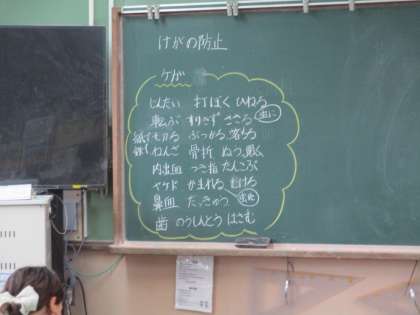 けがの防止
ケガ
じんたい 打ぼく ひねる
転ぶ すりきず ささる
紙で切る ぶつかる 落ちる
ねんざ 骨折
内出血 つき指 たんこぶ
ヤケド かまれる
鼻血 だっきゅう
歯 のうしんとう はさむ